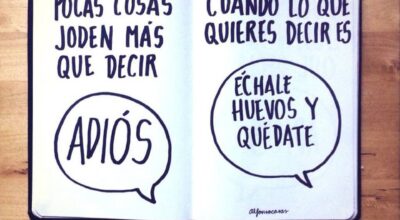 POCAS COSAS
JODEN MÁS
QUE DECIR
ADIÓS
CUANDO LO QUE
QUIERES DECIR ES
ÉCHALE
HUEVOS Y
QUÉDATE
alfonsocasas